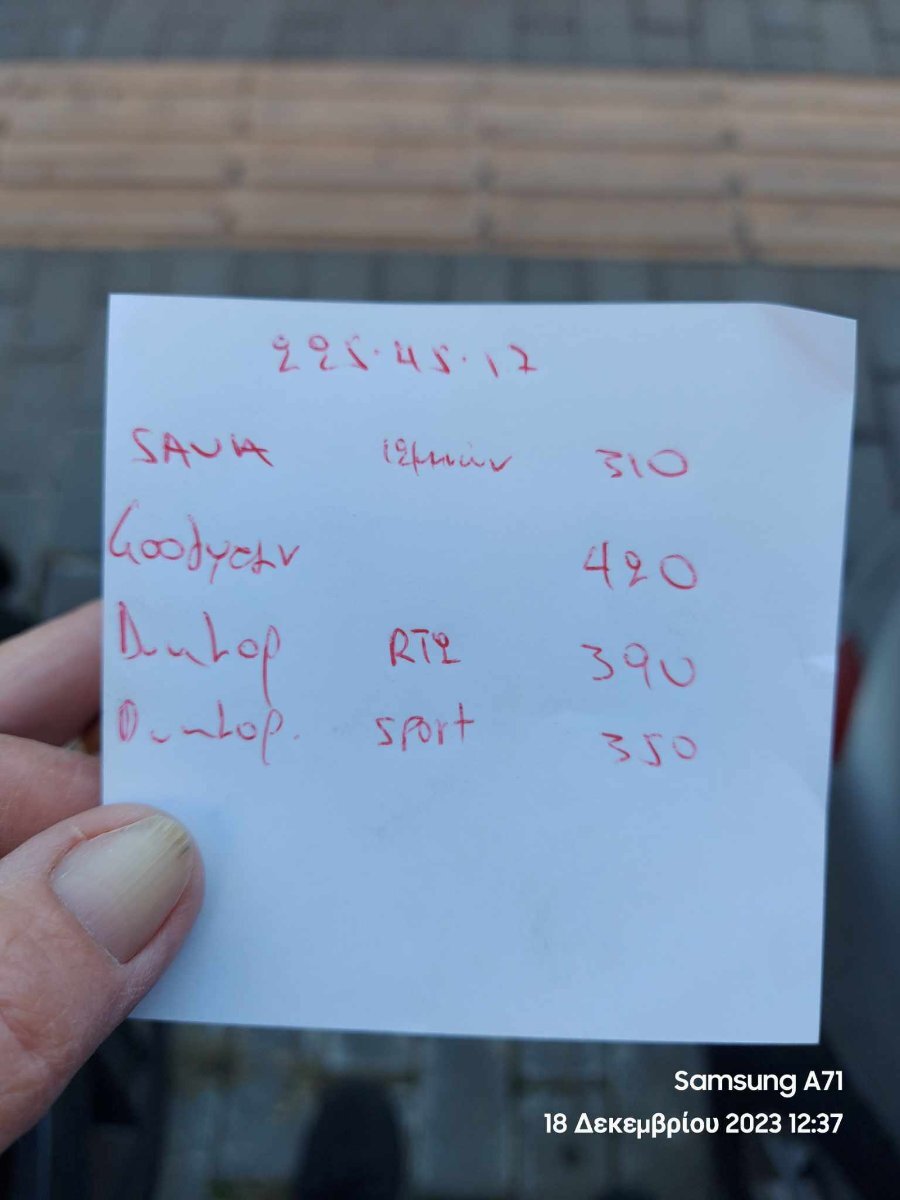 225.45.17
SAVA 12μηνών 310
Goodyear 420
Dunlop RT2 390
Dunlop. sport 350
Samsung A71
18 Δεκεμβρίου 2023 12:37